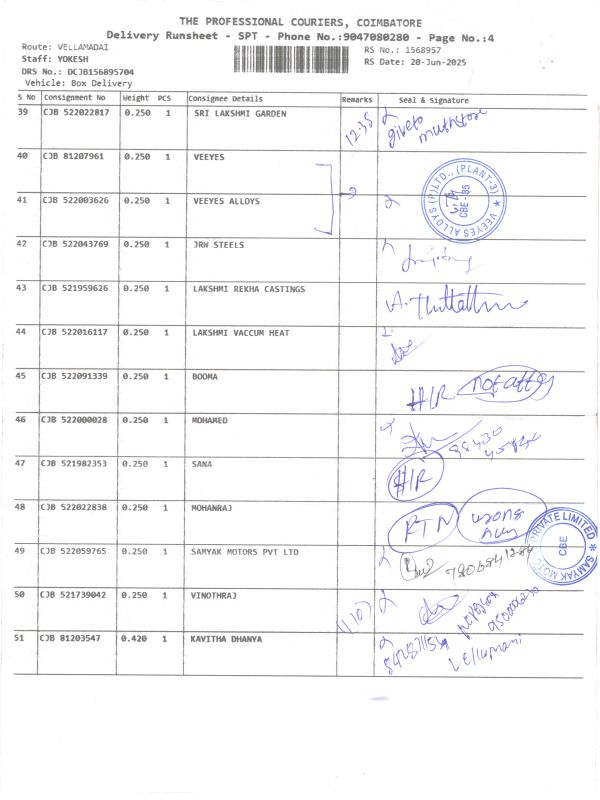 THE PROFESSIONAL COURIERS, COIMBATORE
Delivery Runsheet - SPT - Phone No.:9047080280 - Page No.:4
Route: VELLAMADAI
Staff: YOKESH
DRS No.: DCJB156895704
Vehicle: Box Delivery
RS No.: 1568957
RS Date: 20-Jun-2025
S No Consignment No Weight PCS Consignee Details Remarks Seal & Signature
39 CJB 522022817 0.250 1 SRI LAKSHMI GARDEN 12:35 giveto
40 CJB 81207961 0.250 1 VEEYES
41 CJB 522003626 0.250 1 VEEYES ALLOYS
VEEYES ALLOYS (P) LTD., (PLANT-3) ★
CBE - 85
42 CJB 522043769 0.250 1 JRW STEELS
43 CJB 521959626 0.250 1 LAKSHMI REKHA CASTINGS
44 CJB 522016117 0.250 1 LAKSHMI VACCUM HEAT
45 CJB 522091339 0.250 1 BOOMA H/R
46 CJB 522000028 0.250 1 MOHAMED
47 CJB 521982353 0.250 1 SANA H/R
48 CJB 522022838 0.250 1 MOHANRAJ RTN wrong
49 CJB 522059765 0.250 1 SAMYAK MOTORS PVT LTD
SAMYAK MOTORS PRIVATE LIMITED ★
CBE
50 CJB 521739042 0.250 1 VINOTHRAJ
51 CJB 81203547 0.420 1 KAVITHA DHANYA